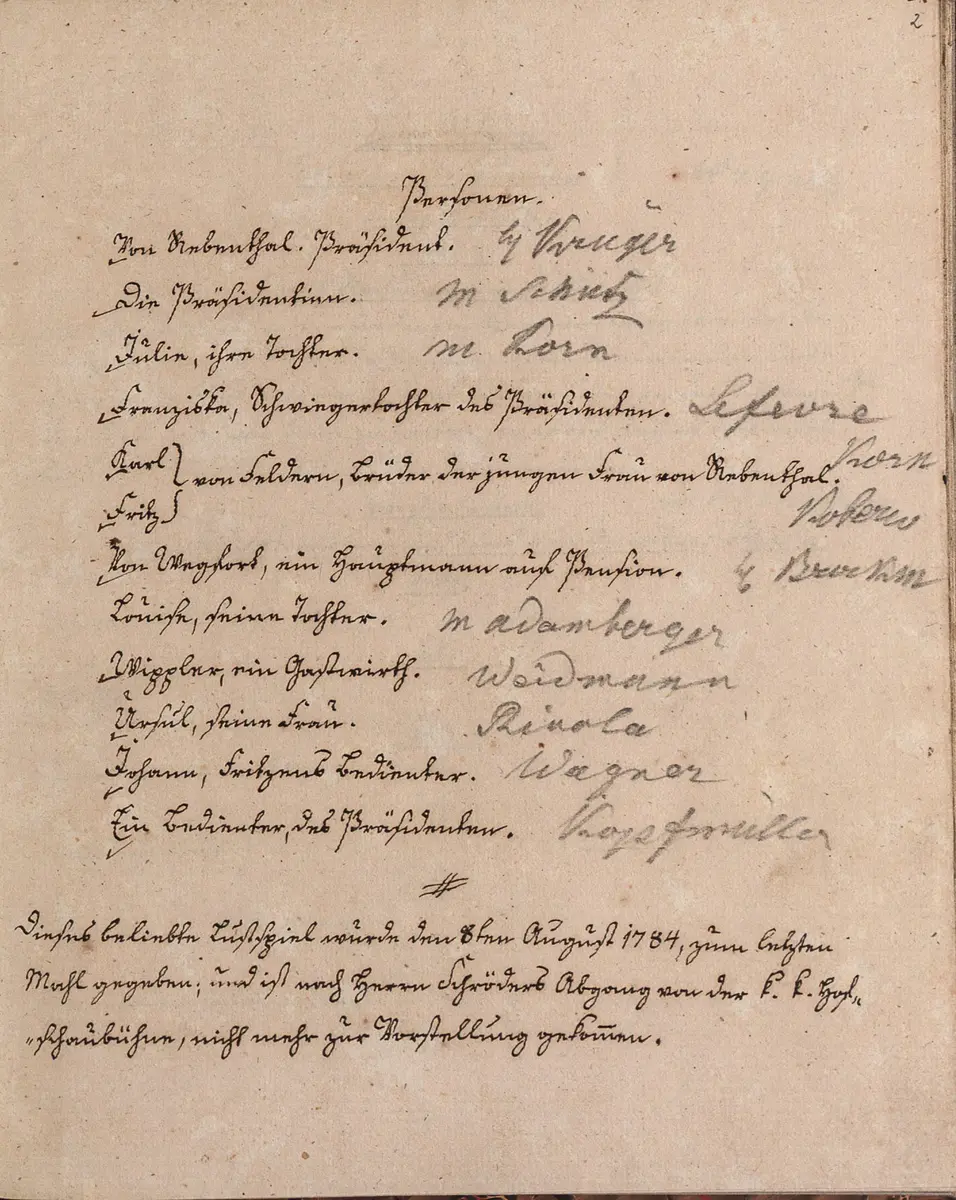 2
Personen.
Von Rebenthal. Präsident. H Krüger
Die Präsidentinn. M Schütz
Julie, ihre Tochter. M. Korn
Franziska, Schwiegertochter des Präsidenten. Lefevre
Karl } von Feldern, Brüder der jungen Frau von Rebenthal. Korn
Fritz } Koberw
Von Wegfort, ein Hauptmann auf Pension. H Brockm
Louise, seine Tochter. M adamberger
Wippler, ein Gastwirth. Weidmann
Ursul, seine Frau. Rivola
Johann, Fritzens Bedienter. Wagner
Ein Bedienter, des Präsidenten. Kopfmüller
Dieses beliebte Lustspiel wurde den 8ten August 1784, zum letzten
Mahl gegeben; und ist nach Herrn Schröders Abgang von der k. k. Hof„
„schaubühne, nicht mehr zur Vorstellung gekom̅en.